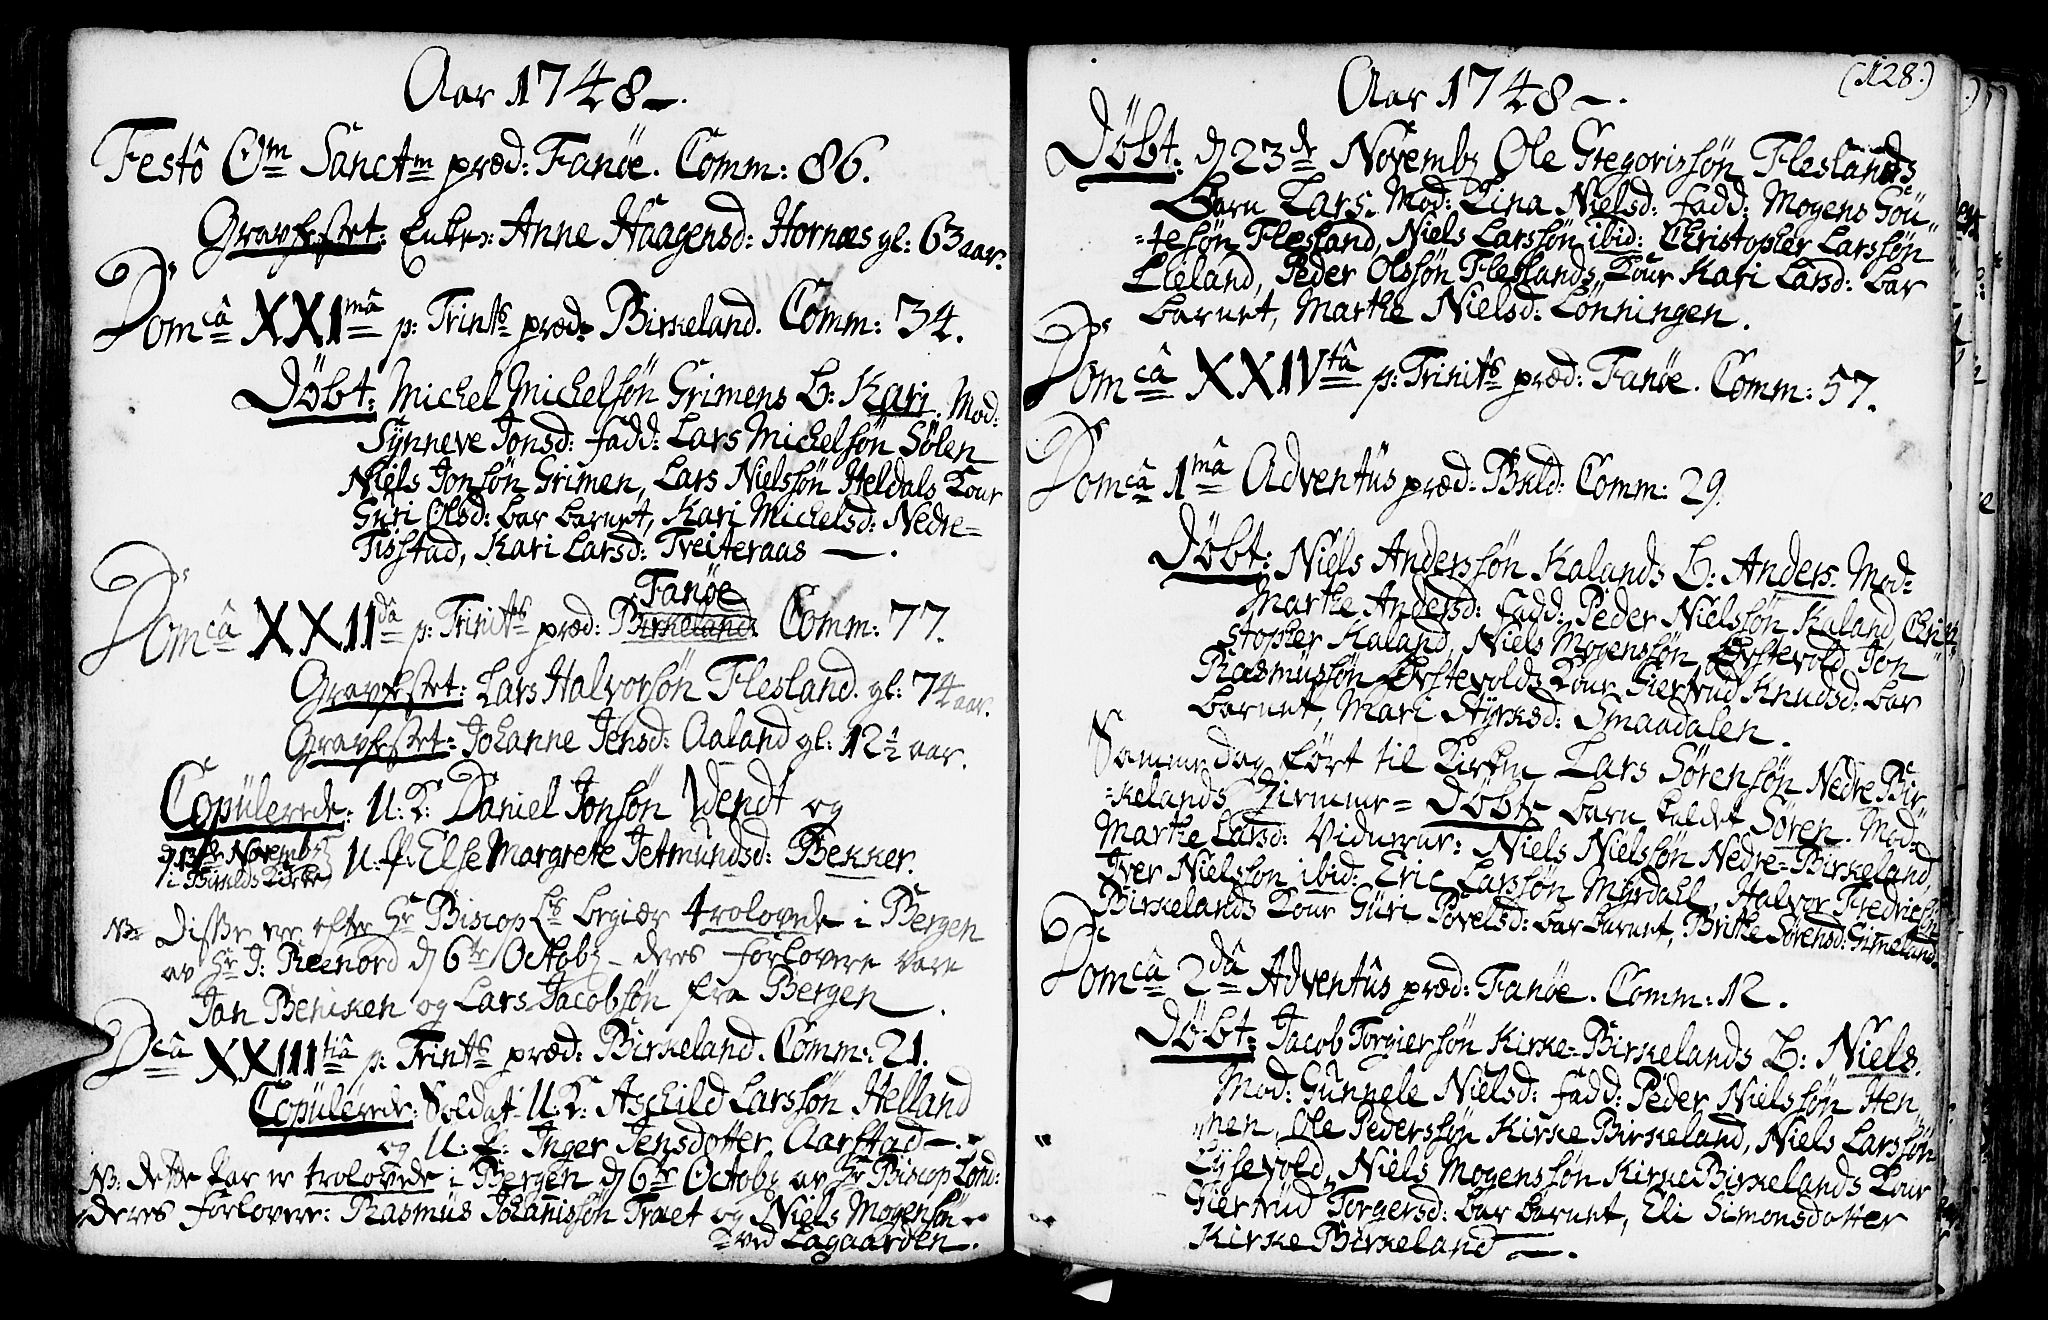 Aar 1748 —.
Festô Om Sanctm præd: Fanöe. Comm: 86.
Gravfæstet: Enke: Anne Haagensd: Hornæs gl: 63 aar.
Domcâ XXImâ p: Trinits præd: Birkeland. Comm: 34.
Döbt: Michel Michelsön Grimens b: Kari. Mod:
Sÿnneve Jonsd: fadd: Lars Michelsön Sölen
Niels Jonsön Grimen, Lars Nielssön Heldals Kone
Gúri Olsd: bar barnet, Kari Michelsd: Nedre=
Tisstad, Kari Larsd: Tveiteraas —.
Domcâ XXIIdâ p: Trinits præd: Birkeland. Fanöe Comm: 77.
Gravfæstet: Lars Halvorsön Flesland. gl: 74 aar.
Gravfæstet: Johanne Jensd: Aaland gl: 12½ aar.
Copúlerede: U. K: Daniel Jonsön Wendt og
d 13de Novembr i Birklds Kirke U. P. Else Margrete Jetmúndsd: Bekker.
NB: Disse ere efter Hr Biscop Ls begiær trolovede i Bergen
av Hr J: Reenord d 6te Octobr — deres forlovere vare
Jan Beniken og Lars Jacobsön fra Bergen.
Dcâ XXIIItiâ p: Trinits præd: Birkeland. Comm: 21.
Copúlerede: Soldat U. K: Aschild Larssön Helland
og U. P: Inger Jensdotter Aarstad —.
NB: dette par er trolovede i Bergen d 6te Octobr av Hr Biscop Lond:
deres forlovere: Rasmus Johanissön Træt og Niels Mogensön
ved Lagaarden.
(128.)
Aar 1748 —.
Döbt: d 23de Novembr Ole Gregorissön Fleslands
barn Lars. Mod: Lina Nielsd: fadd: Mogens Gou-
=tesön Flesland, Niels Larssön ibid: Christopher Larssön
Lieland, Peder Olssön Fleslands Kone Kari Larsd: bar
barnet, Marthe Nielsd: Lönningen.
Domcâ XXIVtâ p: Trinits præd: Fanöe. Comm: 57.
Domcâ 1mâ Adventús præd: Bkld: Comm: 29.
Döbt: Niels Anderssön Kalands b: Anders. Mod:
Marthe Andersd: fadd: Peder Nielssön Kaland Chri-
stopher Kaland, Niels Mogenssön Övstevold, Jon
Rasmussön Övstevolds Kone Giertrud Knudsd: bar
barnet, Mari Styrksd: Smaadalen.
Samme dag fört til Kirken Lars Sörensön Nedre Bir-
=kelands hiemme= Döbte barn kaldet Sören. Mod:
Marthe Larsd: Vidnerne: Niels Nielssön Nedre=Birkeland,
Iver Nielsson ibid: Eric Larssön Myrdahl, Halvor Fredricsön
Birkelands Kone Gúri Povelsd: bar barnet, Brithe Sörensd: Gimeland.
Domcâ 2dâ Adventús præd: Fanöe. Comm: 12.
Döbt: Jacob Torgiersön Kirke=Birkelands b: Niels.
Mod: Gúnnele Nielsd: fadd: Peder Nielssön Hen-
men, Ole Pederssön Kirke Birkeland, Niels Larssön
Lÿsevold, Niels Mogenssön Kirke Birkelands Kone
Giertrúd Torgersd: bar barnet, Eli Simonsdotter
Kirke Birkeland —.